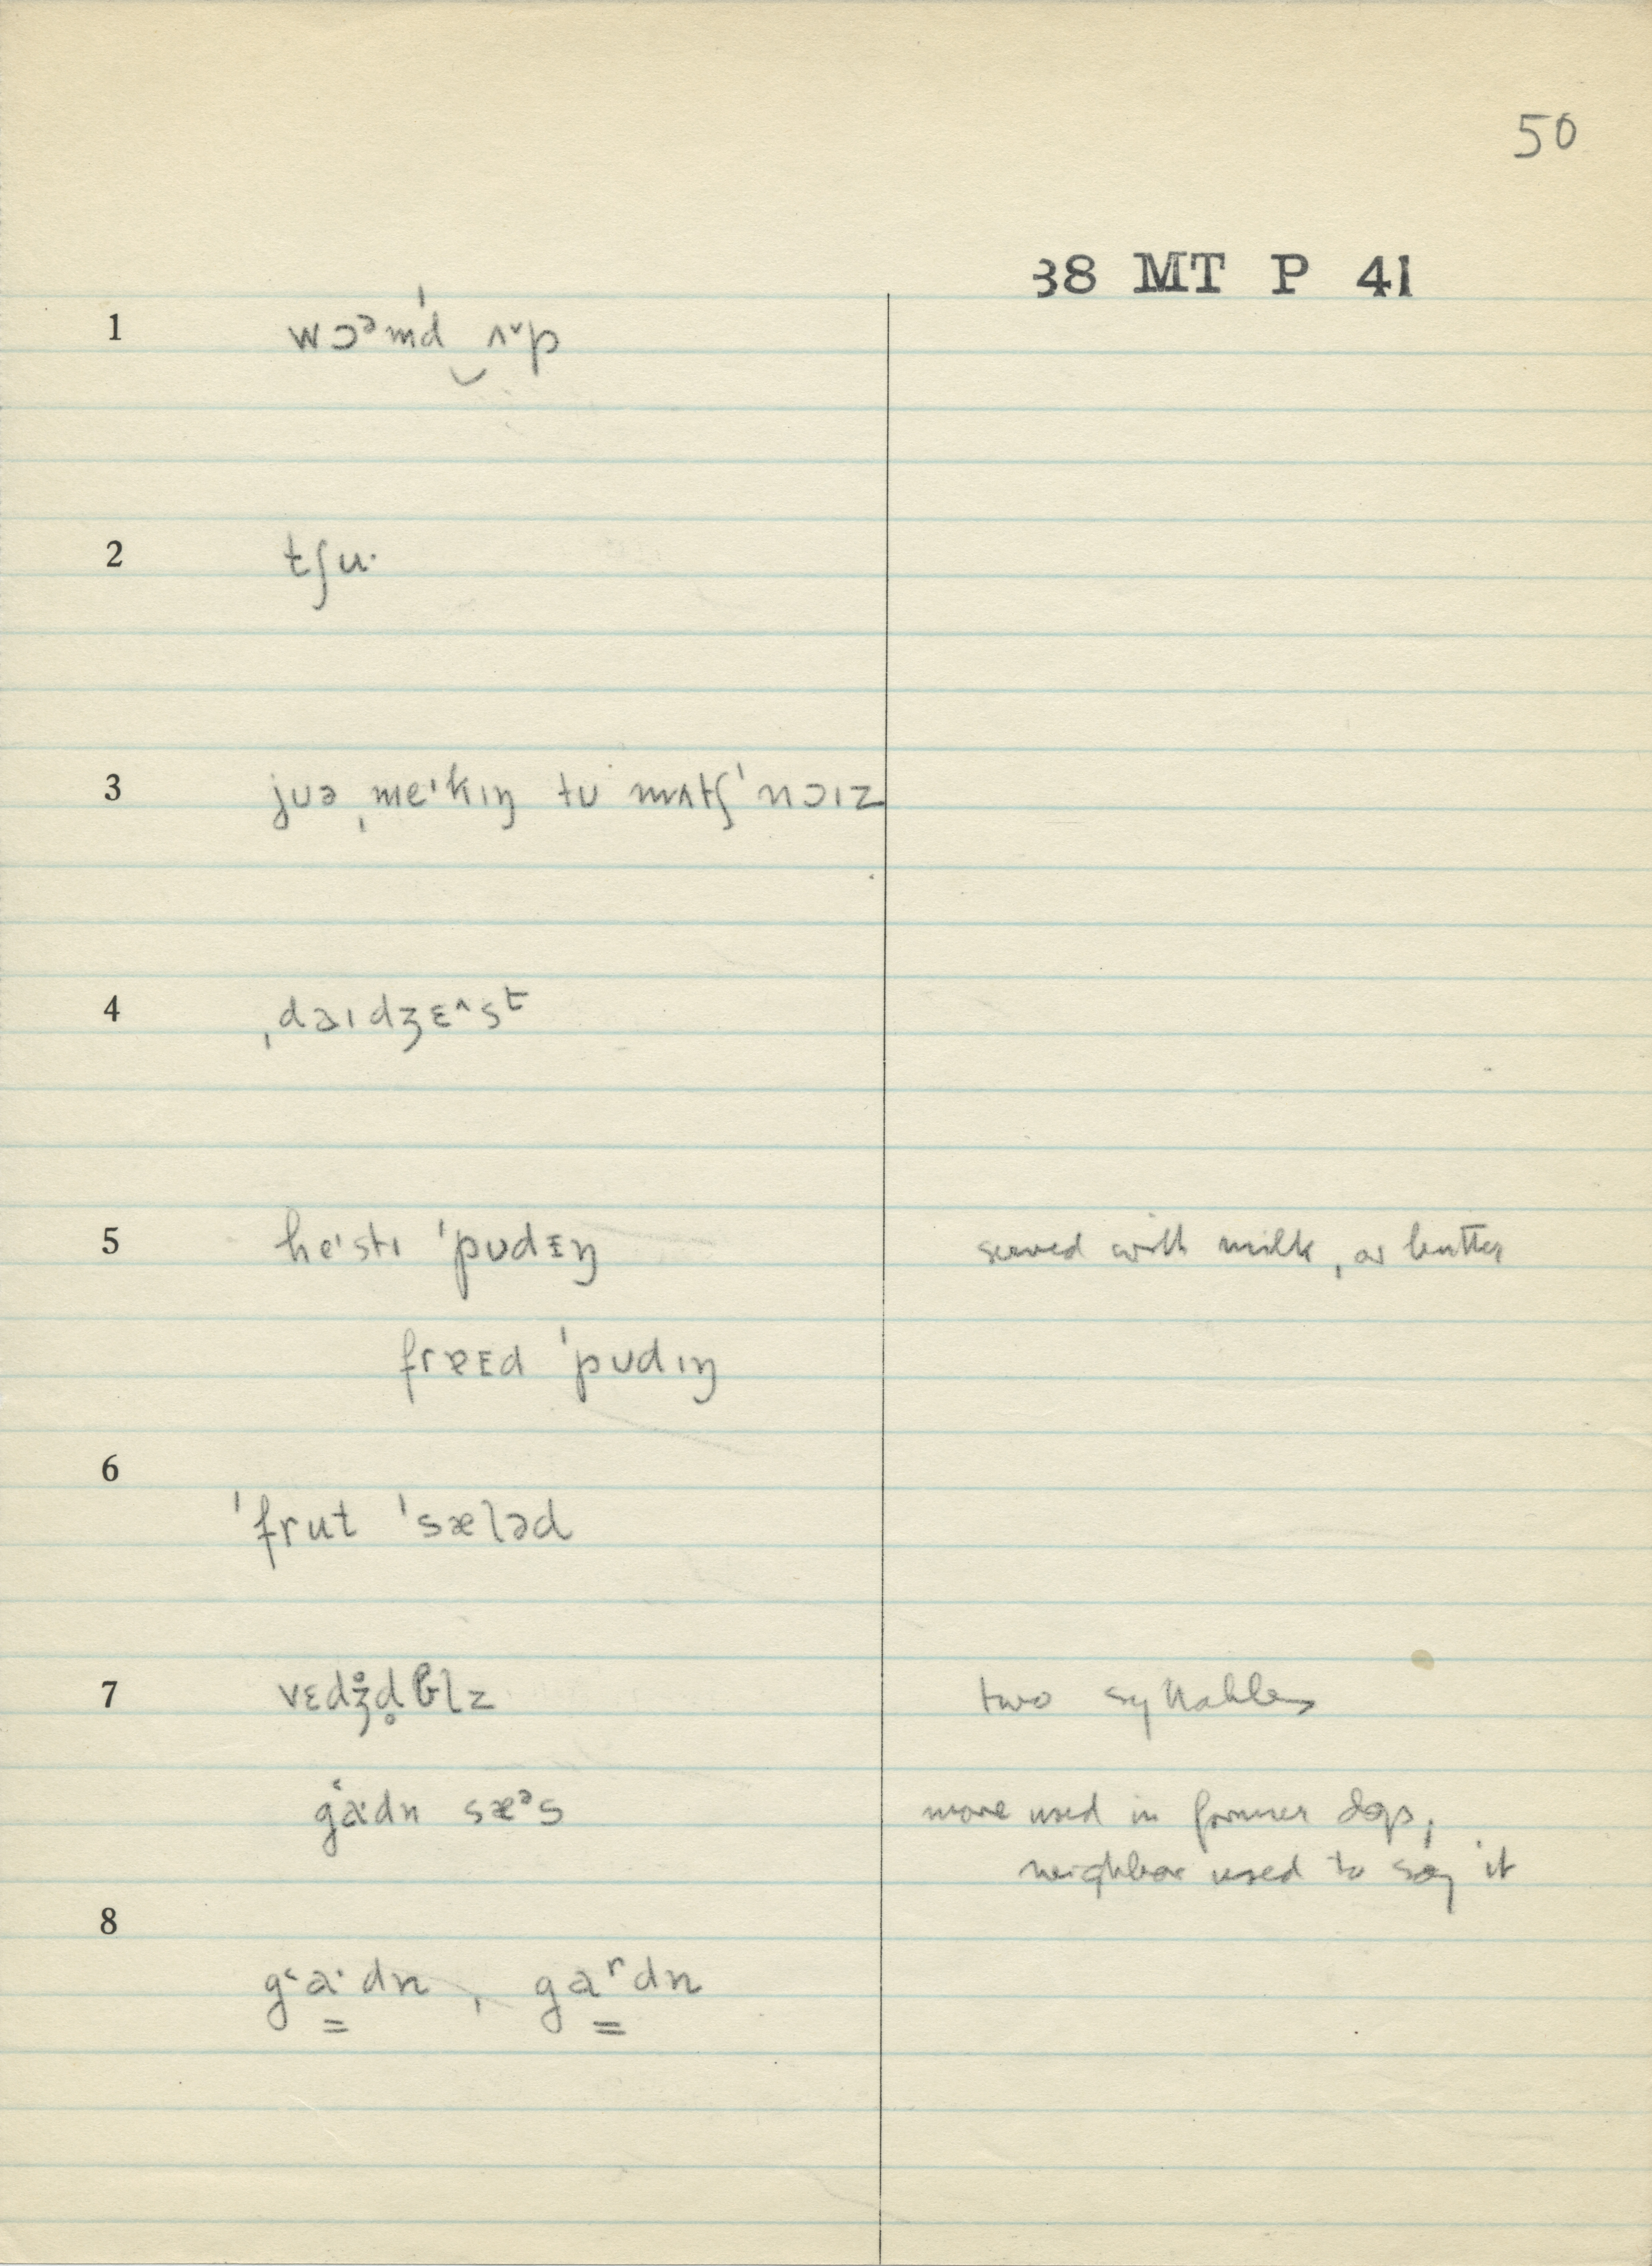 50
38 MT P 41
1 wɔᵊmˈd‿ʌ˅p
2 tʃu·
3 juə ˌmeˈkɪŋ tʊ mʌtʃ ˈnɔɪz
4 ˌdəɪdʒɛ^sᵗ
5 heˈstɪ ˈpʊdɪŋ served with milk, or butter
freɪd ˈpʊdɪŋ
6
ˈfrut ˈsæləd
7 vɛdʒ̊d̥b̥lz two syllables
g˂a·dn sæᵊs more used in former days;
neighbor used to say it
8
g˂a̳·dn, ga̳ʳdn